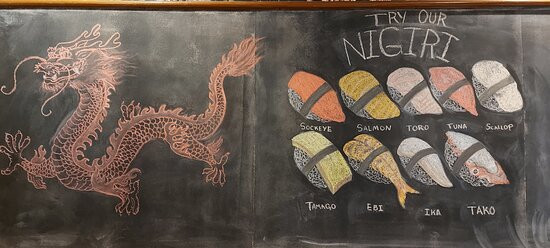 TRY OUR
NIGIRI
SOCKEYE SALMON TORO TUNA SCALLOP
TAMAGO EBI IKA TAKO